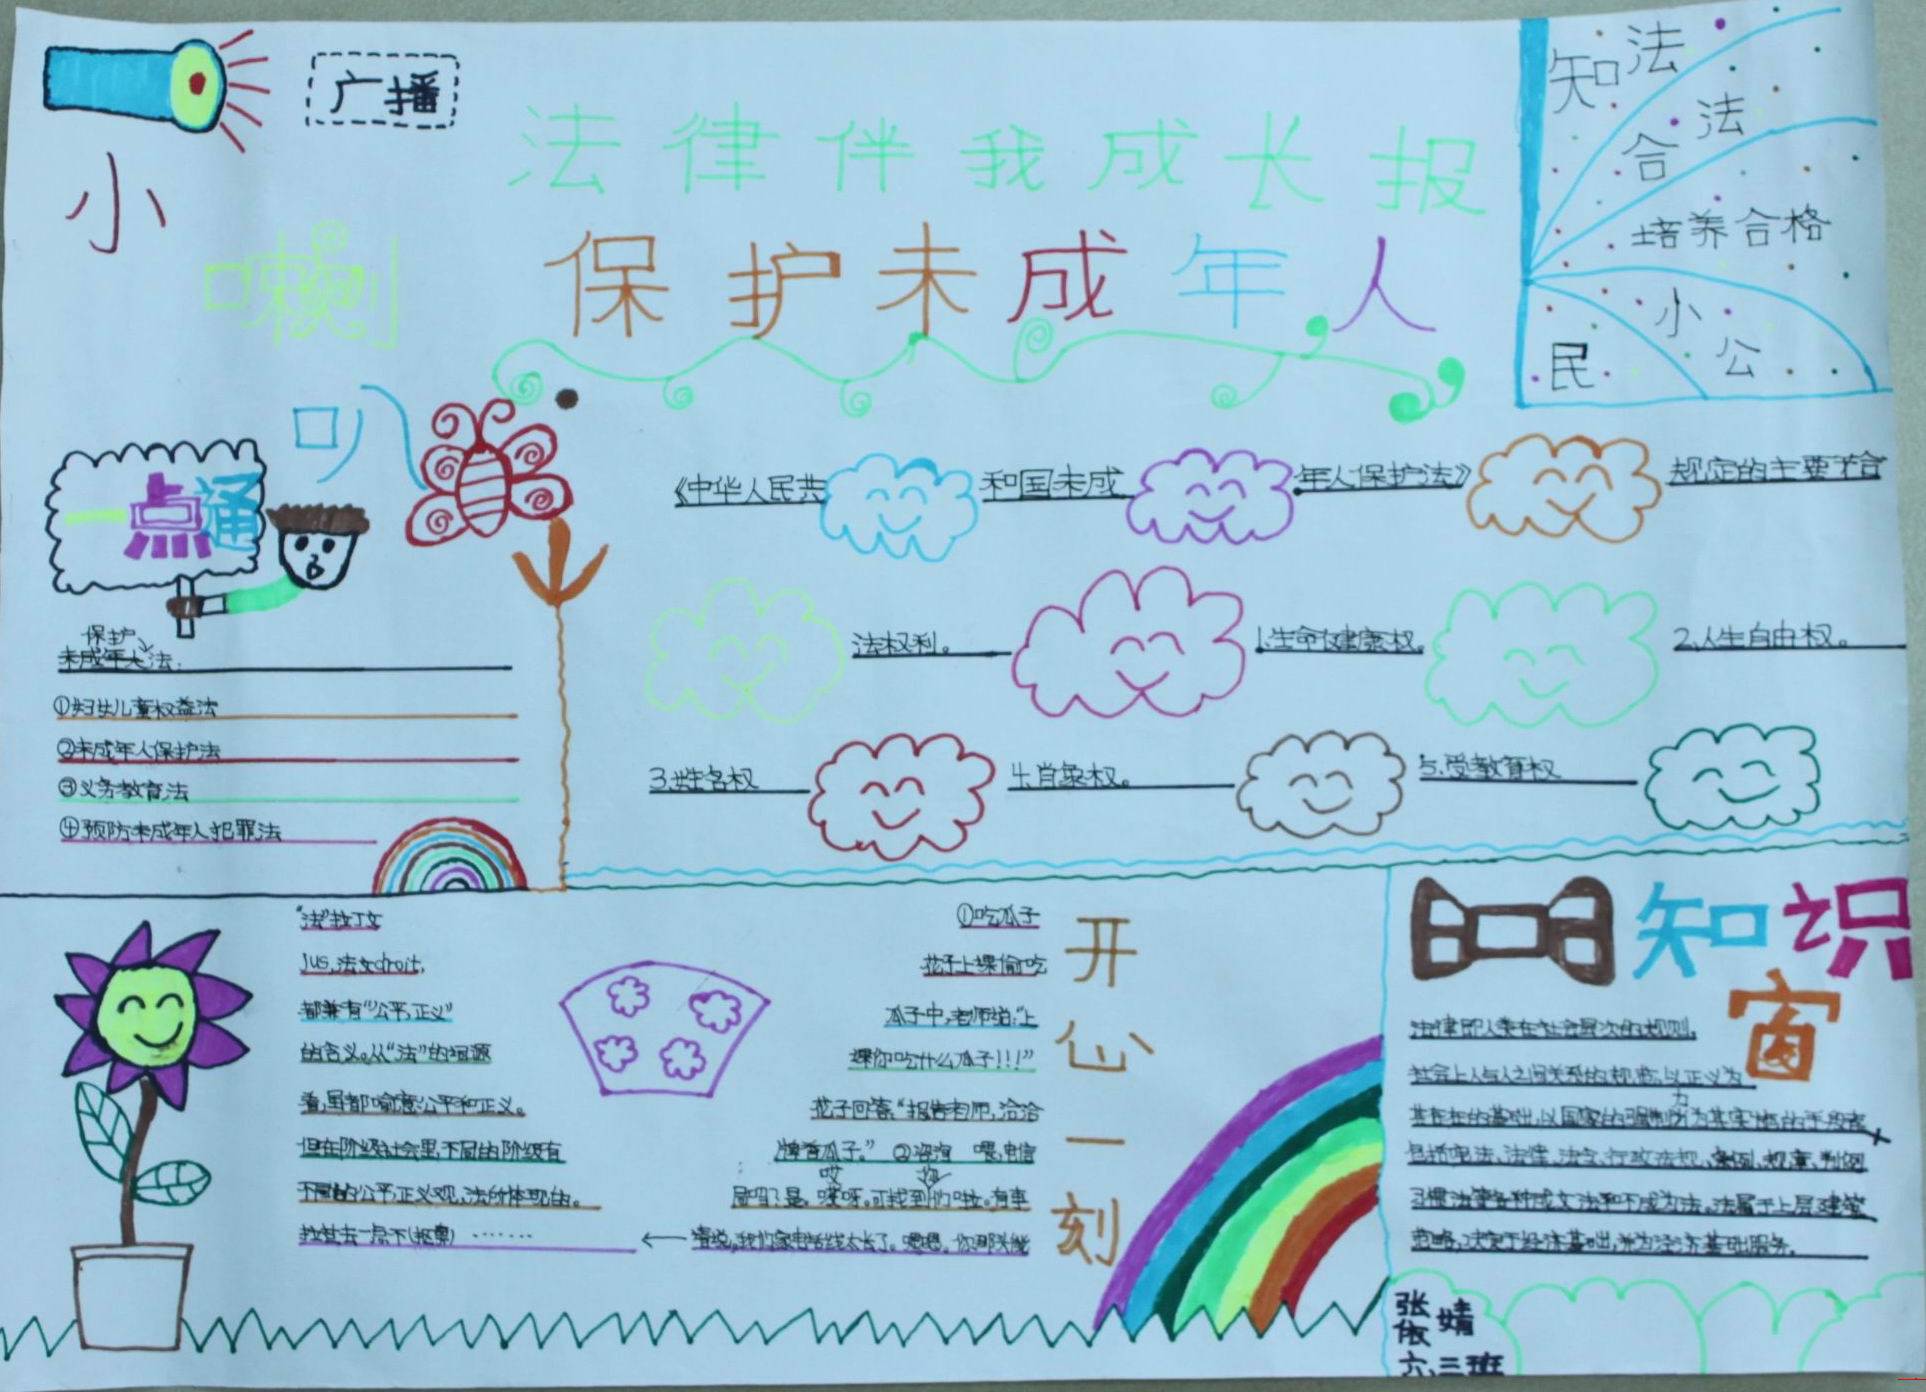 广播
小
喇
叭
法律伴我成长报
保护未成年人
知法
合法
培养合格
小公
民
一点通
保护
未成年人法:
①妇女儿童权益法
②未成年人保护法
③义务教育法
④预防未成年人犯罪法
《中华人民共 和国未成 年人保护法》 规定的主要符合
法权利。 1.生命健康权。 2.人生自由权。
3.姓名权 4.肖象权。 5.受教育权
"法"拉丁文
Jus,法文droit,
都兼有"公平,正义"
的含义。从"法"的词源
看,里都喻意公平和正义。
但在阶级社会里,不同的阶级有
不同的公平,正义观,法所体现的。
拉过去一点不(抵票) ……
开心一刻
①吃瓜子
花子上课偷吃
瓜子中,老师培:"上
课你吃什么瓜子!!!"
花子回答:"报告老师,洽洽
牌香瓜子。" ②咨询 喂,电信
局吗?是。哎呀。可找到你们啦。有事
请说,我们家电话线太长了。嗯嗯。你那头能
知识
窗
法律即人类在社会层次的规则,
社会上人与人之间关系的规范,以正义为
其存在的基础,以国家的强制力为其实施的手段者
包括宪法、法律、法令、行政法规、条例、规章、判例
习惯法等各种成文法和不成为法。法属于上层建筑
范畴,决定于经济基础,并为经济基础服务。
张依婧
六.三班